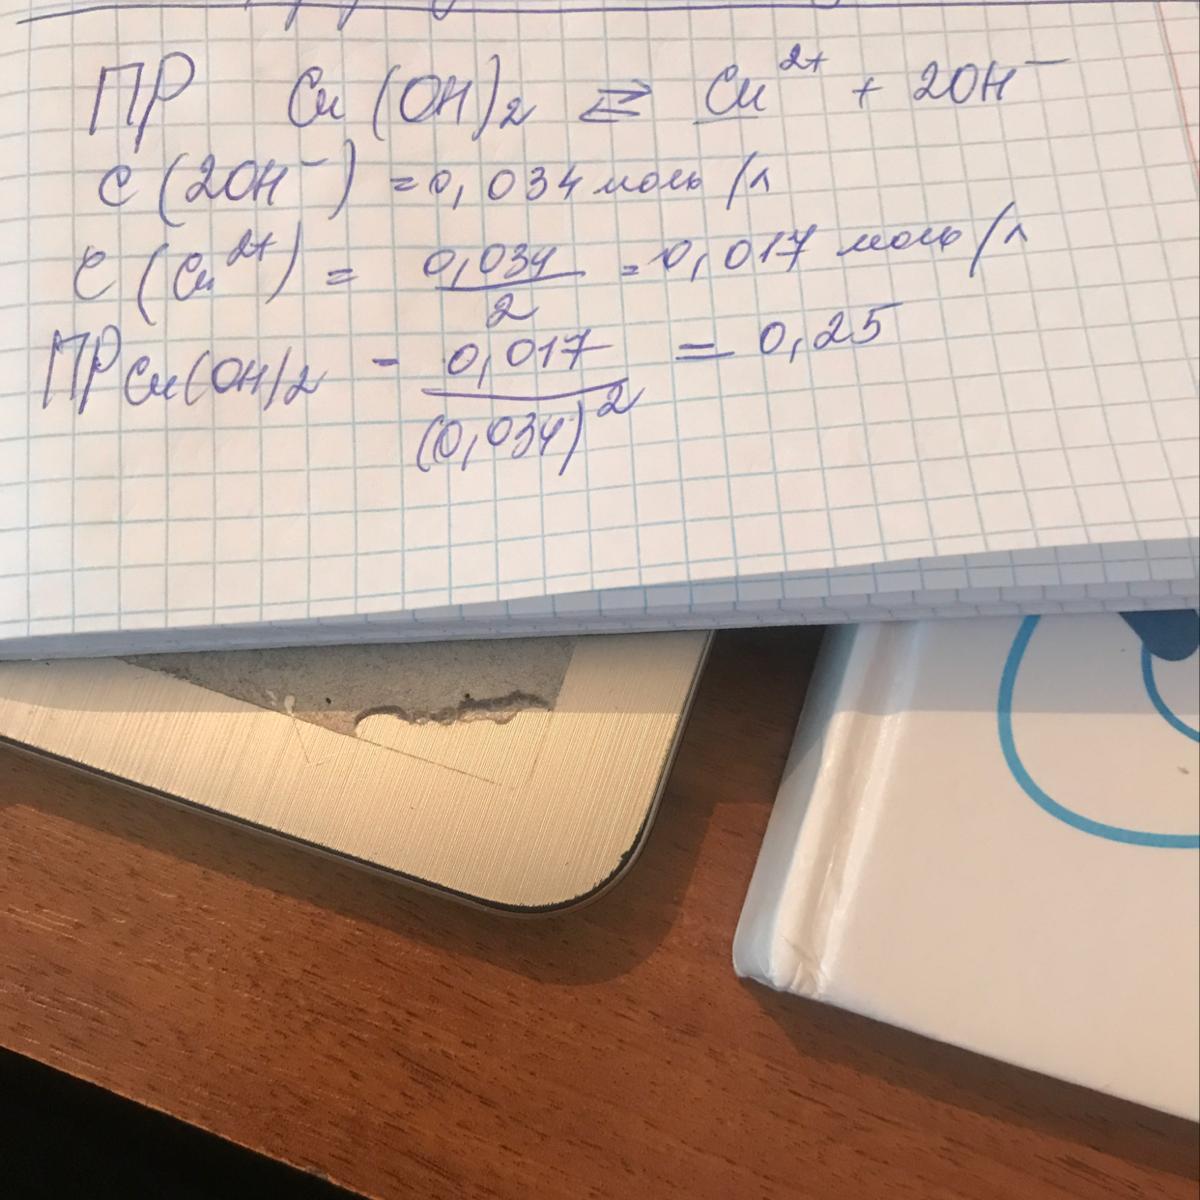 ПР Cu(OH)2 ⇄ Cu²⁺ + 2OH⁻
C(2OH⁻) = 0,034 моль/л
C(Cu²⁺) = 0,034/2 = 0,017 моль/л
ПР Cu(OH)2 - 0,017/(0,034)² = 0,25